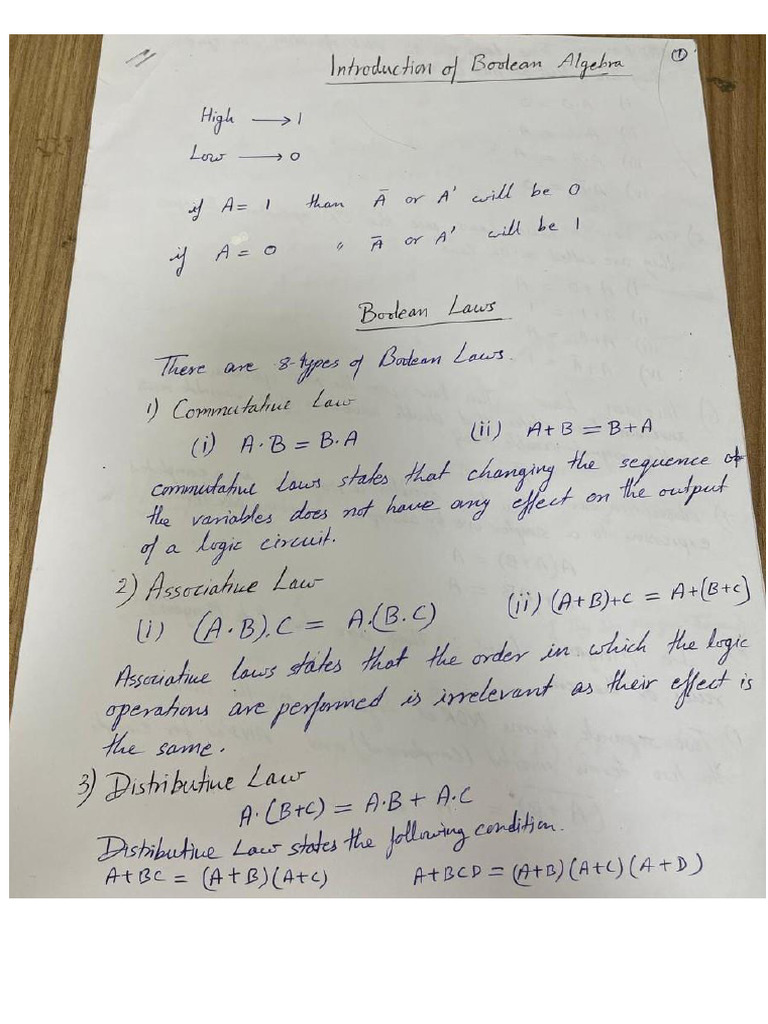 Introduction of Boolean Algebra
①
High → 1
Low → 0
if A = 1 than Ā or A' will be 0
if A = 0 " Ā or A' will be 1
Boolean Laws
There are 8-types of Boolean Laws.
1) Commutative Law
(i) A·B = B·A (ii) A+B = B+A
commutative Laws states that changing the sequence of
the variables does not have any effect on the output
of a logic circuit.
2) Associative Law
(i) (A·B).C = A.(B·C) (ii) (A+B)+C = A+(B+C)
Associative laws states that the order in which the logic
operations are performed is irrelevant as their effect is
the same.
3) Distributive Law
A·(B+C) = A·B + A·C
Distributive Law states the following condition.
A+BC = (A+B)(A+C) A+BCD = (A+B)(A+C)(A+D)